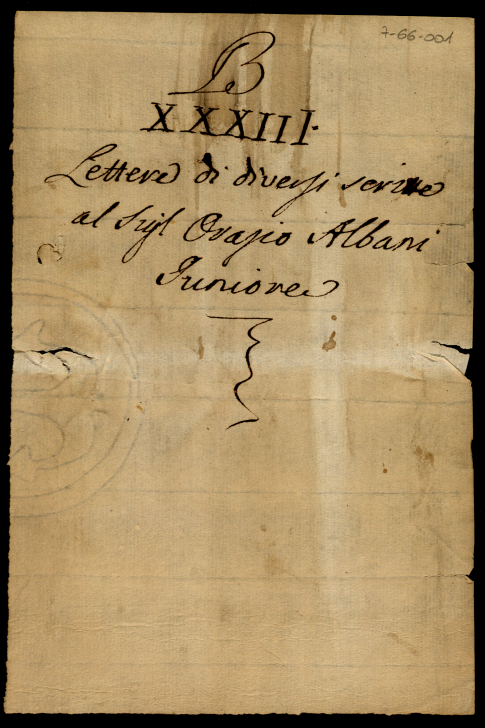 7-66-001
B
XXXIII.
Lettere di diversi scritte
al Sigl Orazio Albani
Juniore